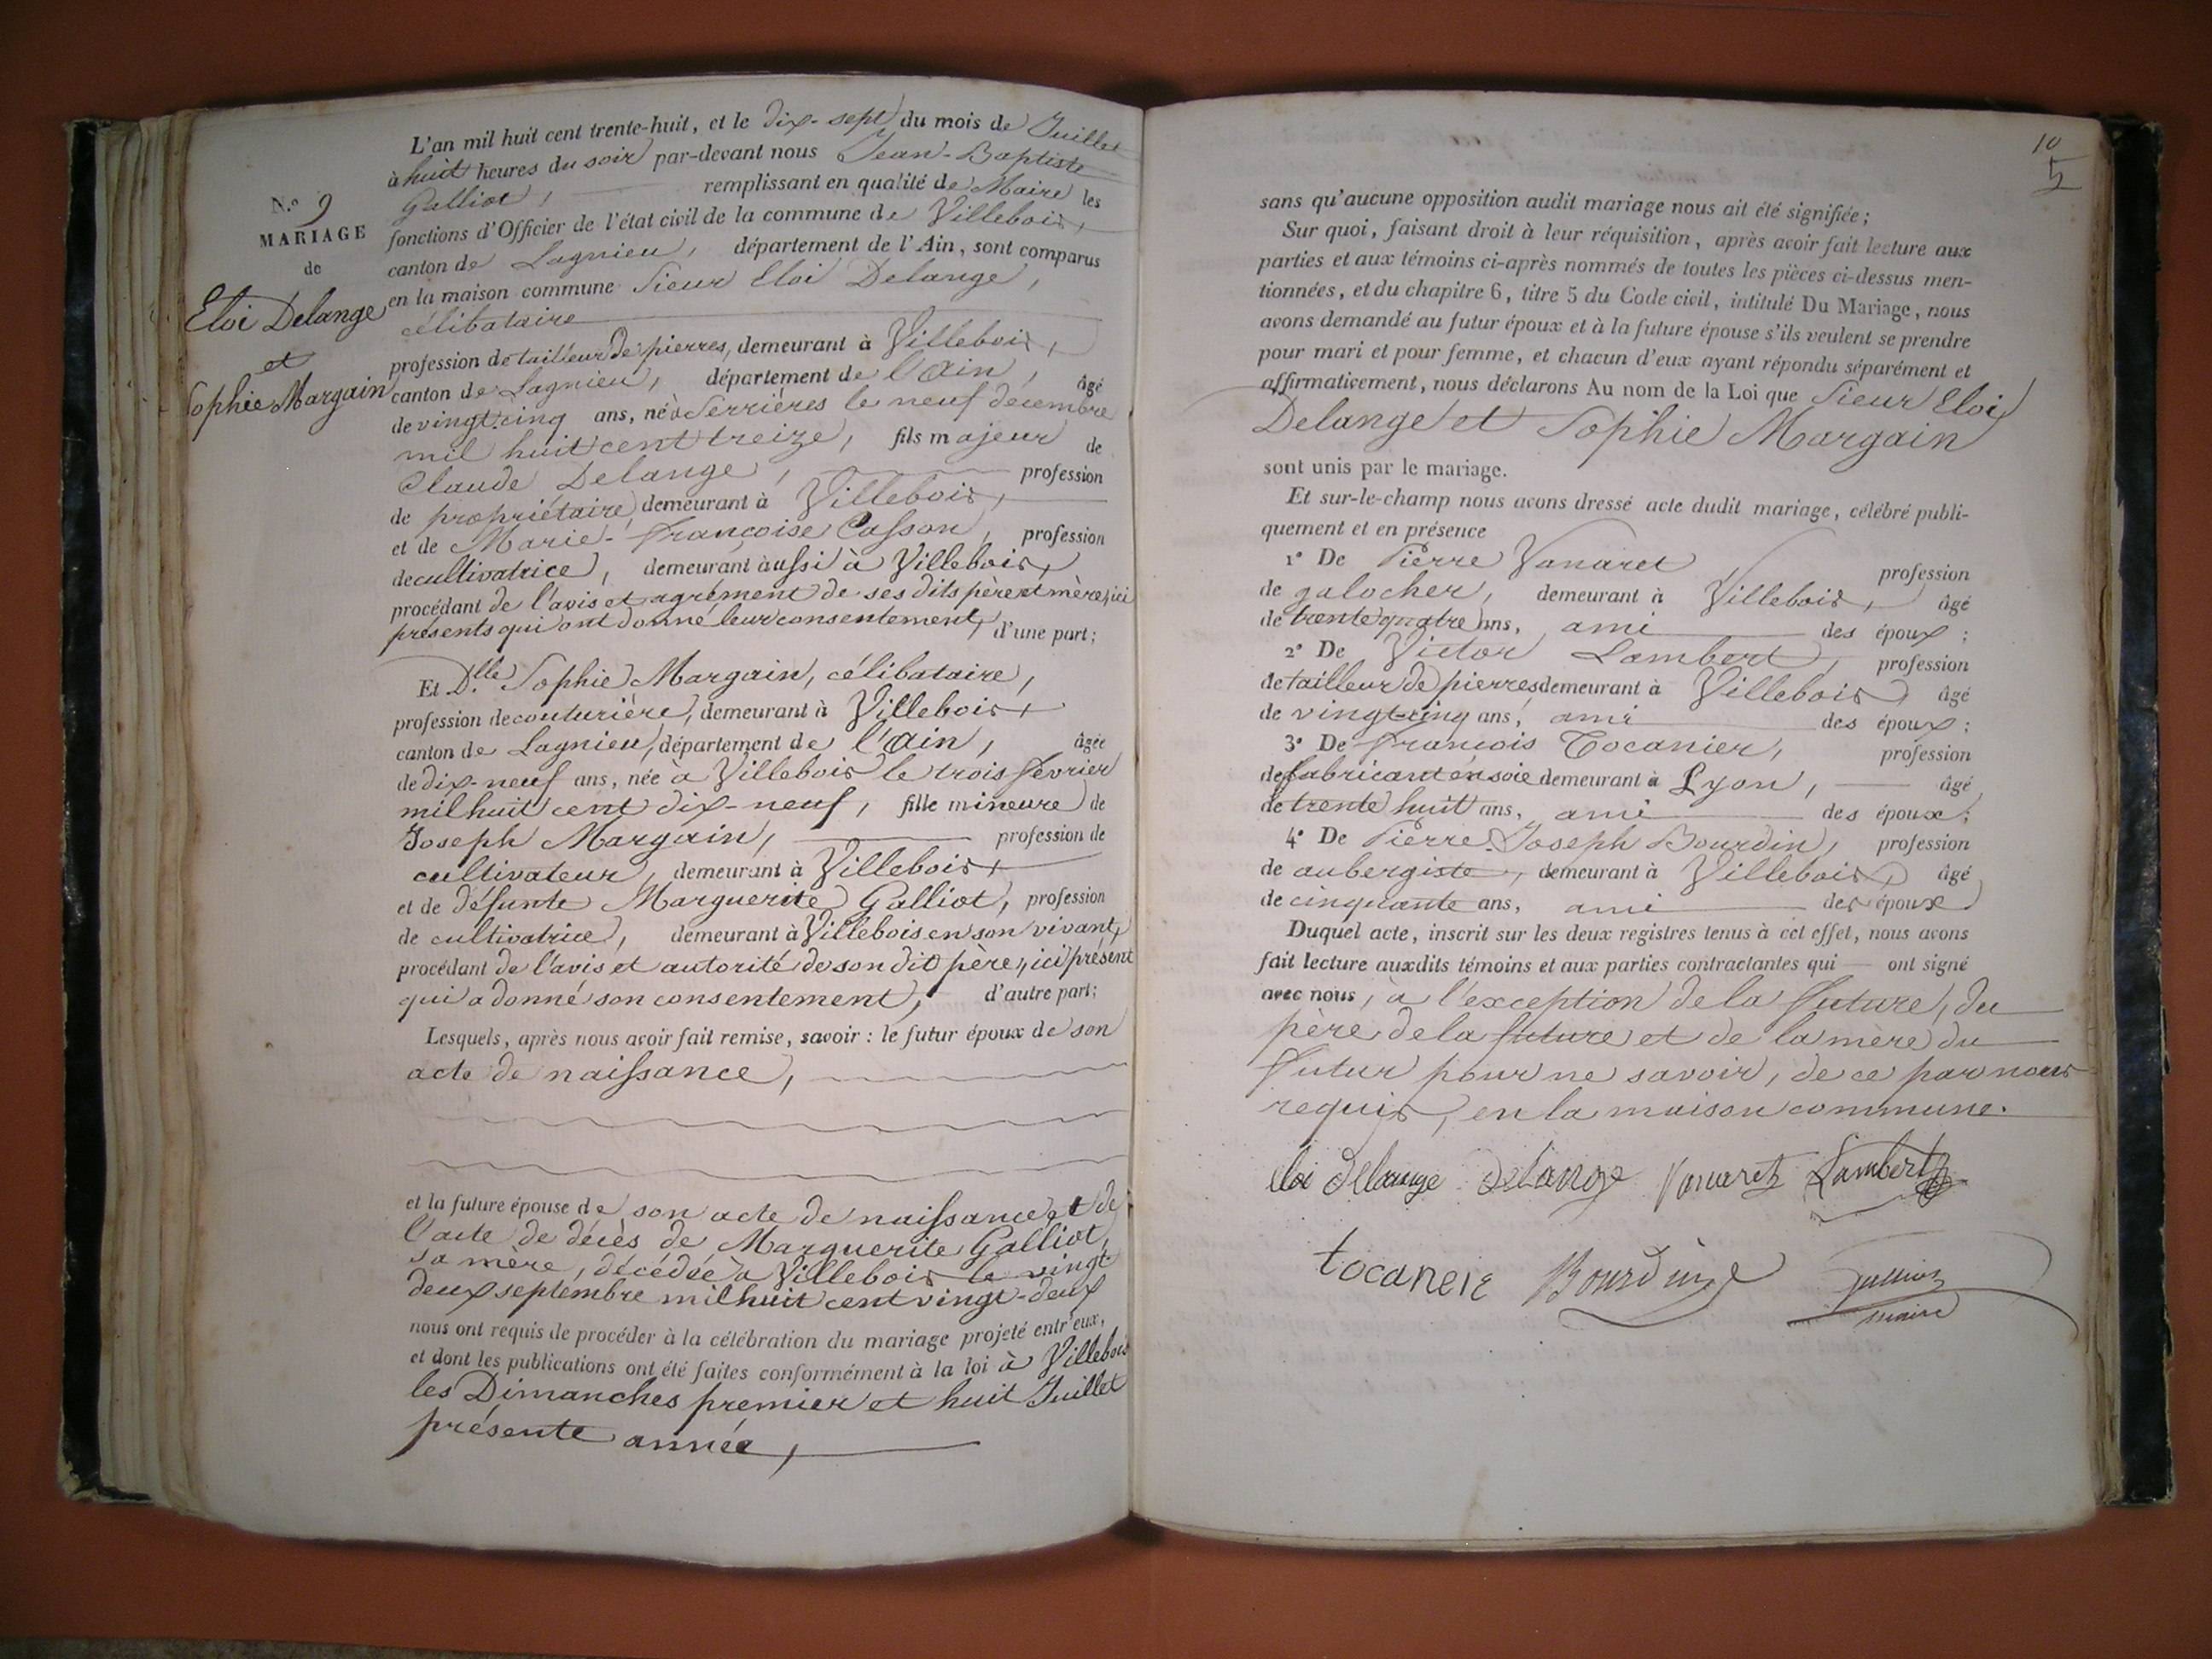 N.º 9
MARIAGE
de
Eloi Delange
et
Sophie Margain
L'an mil huit cent trente-huit, et le dix-sept du mois de Juillet
à huit heures du soir par-devant nous Jean-Baptiste
Galliot, remplissant en qualité de Maire les
fonctions d'Officier de l'état civil de la commune de Villebois,
canton de Lagnieu, département de l'Ain, sont comparus
en la maison commune Sieur Eloi Delange,
célibataire
profession de tailleur de pierres, demeurant à Villebois,
canton de Lagnieu, département de l'Ain, âgé
de vingt-cinq ans, né à Serrières le neuf décembre
mil huit cent treize, fils majeur de
Claude Delange, profession
de propriétaire, demeurant à Villebois,
et de Marie-Françoise Casson, profession
de cultivatrice, demeurant aussi à Villebois,
procédant de l'avis et agrément de ses dits père et mère, ici
présents qui ont donné leur consentement, d'une part;
Et Dlle Sophie Margain, célibataire,
profession de couturière, demeurant à Villebois,
canton de Lagnieu, département de l'Ain, âgée
de dix-neuf ans, née à Villebois le trois février
mil huit cent dix-neuf, fille mineure de
Joseph Margain, profession de
cultivateur, demeurant à Villebois,
et de défunte Marguerite Galliot, profession
de cultivatrice, demeurant à Villebois en son vivant,
procédant de l'avis et autorité de son dit père, ici présent
qui a donné son consentement, d'autre part;
Lesquels, après nous avoir fait remise, savoir : le futur époux de son
acte de naissance,
et la future épouse de son acte de naissance et de
l'acte de décès de Marguerite Galliot,
sa mère, décédée à Villebois le vingt-
deux septembre mil huit cent vingt-deux
nous ont requis de procéder à la célébration du mariage projeté entr'eux,
et dont les publications ont été faites conformément à la loi à Villebois
les Dimanches premier et huit Juillet
présente année,
10
5
sans qu'aucune opposition audit mariage nous ait été signifiée;
Sur quoi, faisant droit à leur réquisition, après avoir fait lecture aux
parties et aux témoins ci-après nommés de toutes les pièces ci-dessus men-
tionnées, et du chapitre 6, titre 5 du Code civil, intitulé Du Mariage, nous
avons demandé au futur époux et à la future épouse s'ils veulent se prendre
pour mari et pour femme, et chacun d'eux ayant répondu séparément et
affirmativement, nous déclarons Au nom de la Loi que Sieur Eloi
Delange et Sophie Margain
sont unis par le mariage.
Et sur-le-champ nous avons dressé acte dudit mariage, célébré publi-
quement et en présence
1º De Pierre Vanaret, profession
de galocher, demeurant à Villebois, âgé
de trente quatre ans, ami des époux;
2º De Victor Lambert, profession
de tailleur de pierres demeurant à Villebois, âgé
de vingt-cinq ans, ami des époux;
3º De François Tocanier, profession
de fabricant en soie demeurant à Lyon, âgé
de trente huit ans, ami des époux;
4º De Pierre-Joseph Bourdin, profession
de aubergiste, demeurant à Villebois, âgé
de cinquante ans, ami des époux
Duquel acte, inscrit sur les deux registres tenus à cet effet, nous avons
fait lecture auxdits témoins et aux parties contractantes qui ont signé
avec nous, à l'exception de la future, du
père de la future et de la mère du
futur pour ne savoir, de ce par nous
requis, en la maison commune.
eloi delange delange Vanaret Lambert
tocaneir Bourdin galliot
maire